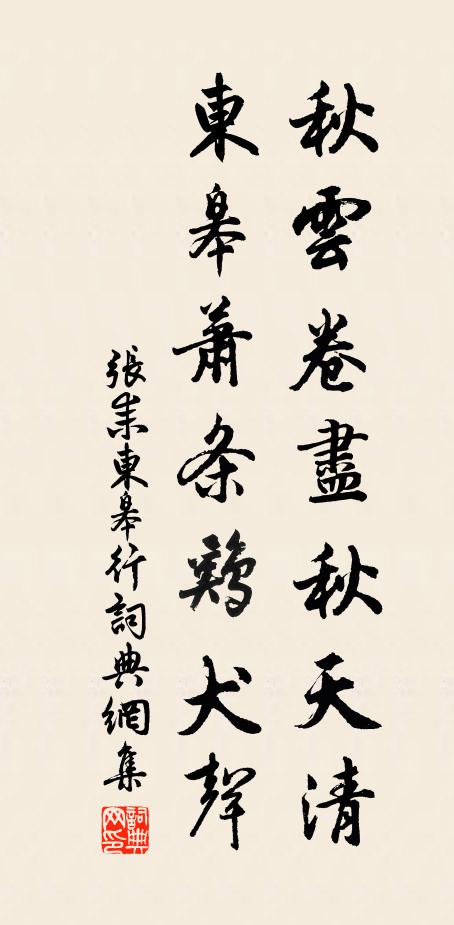 秋雲卷盡秋天清
東皋蕭条鷄犬聲
張耒東皋行詞典網集
詞典網印